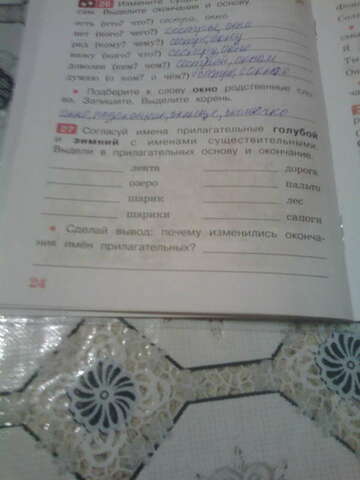 26 Измените
сам. Выделите окончания и основу
есть (кто? что?) сестра, окно
нет (кого? чего?) сестры, окна
рад (кому? чему?) сестре, окну
вижу (кого? что?) сестру, окно
доволен (кем? чем?) сестрой, окном
думаю (о ком? о чём?)
• Подберите к слову окно родственные сло-
ва. Запишите. Выделите корень.
27 Согласуй имена прилагательные голубой
и зимний с именами существительными.
Выдели в прилагательных основу и окончание.
лента дорога
озеро пальто
шарик лес
шарики сапоги
• Сделай вывод: почему изменились оконча-
ния имён прилагательных?
24